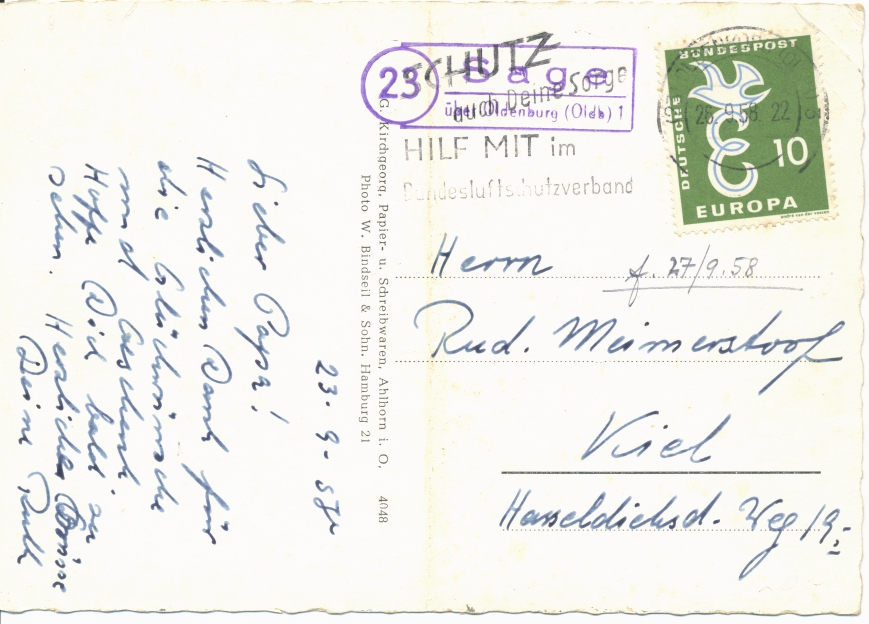 23-9-58
Lieber Papa!
Herzlichen Dank für
die Glückwünsche
und Geschenk.
Hoffe Dich bald zu
sehen. Herzliche Grüsse
Deine Ruth
G. Kirchgeorg, Papier- u. Schreibwaren, Ahlhorn i. O. 4048
Photo W. Bindseil & Sohn, Hamburg 21
SCHUTZ
durch Deine Sorge
HILF MIT im
Bundesluftschutzverband
23
Sage
über Oldenburg (Oldb) 1
26.9.58. 22
DEUTSCHE
BUNDESPOST
10
EUROPA
Herrn
f. 27/9.58
Rud. Meimerstorf
Kiel
Hasseldieksd. Weg 19.-